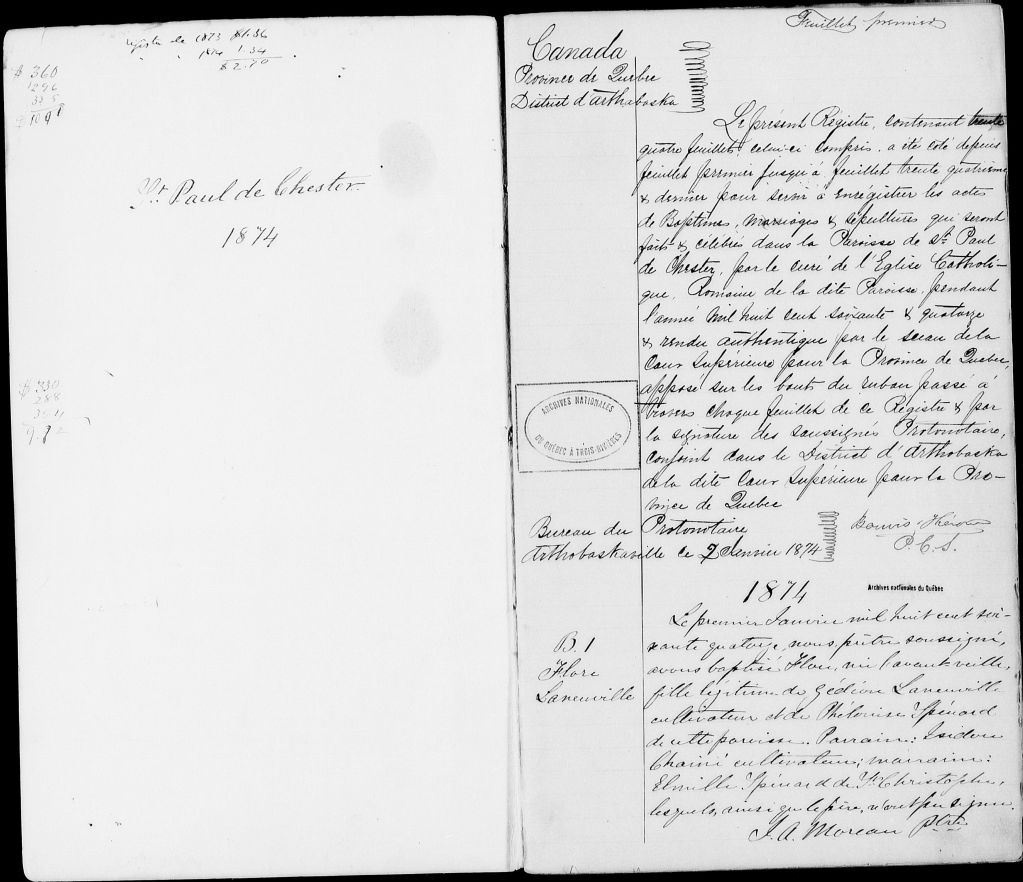 Régistre de 1873 $1.36
" " 1874 1.34
$2.70
$ 360
1296
$ 330
288
St Paul de Chester
1874
Feuillet premier
Canada
Province de Quebec
District d'Arthabaska
Le présent Régistre, contenant trente
quatre feuillets celui-ci compris, a été coté depuis
feuillet premier jusqu'à feuillet trente quatrieme
& dernier pour servir à enrégistrer les actes
de Baptêmes, Mariages & sépultures qui seront
faits & célébrés dans la Paroisse de St. Paul
de Chester, par le curé de l'Eglise Catholi-
que, Romaine de la dite Paroisse, pendant
l'année mil huit cent soixante & quatorze
& rendu authentique par le sceau de la
Cour Supérieure pour la Province de Quebec,
apposé sur les bouts du ruban passé à
travers chaque feuillet de ce Régistre & par
la signature des soussignés Protonotaire,
conjoint dans le District d'Arthabaska
de la dite Cour Supérieure pour la Pro-
vince de Quebec
ARCHIVES NATIONALES
DU QUÉBEC À TROIS-RIVIÈRES
Bureau du Protonotaire
Arthabaskaville ce 7 Janvier 1874
P.C.S.
1874
Archives nationales du Québec
B. 1
Flore
Laneuville
Le premier Janvier mil huit cent soi-
xante quatorze, nous, prêtre soussigné,
avons baptisé Flore, née l'avant veille,
fille légitime de Gédéon Laneuville
cultivateur et de Philomise Spénard
de cette paroisse. Parrain: Isidore
Chainé cultivateur; marraine:
Elmille Spénard de St Christophe,
lesquels, ainsi que le père, n'ont pu signer.
J. A. Moreau Ptre